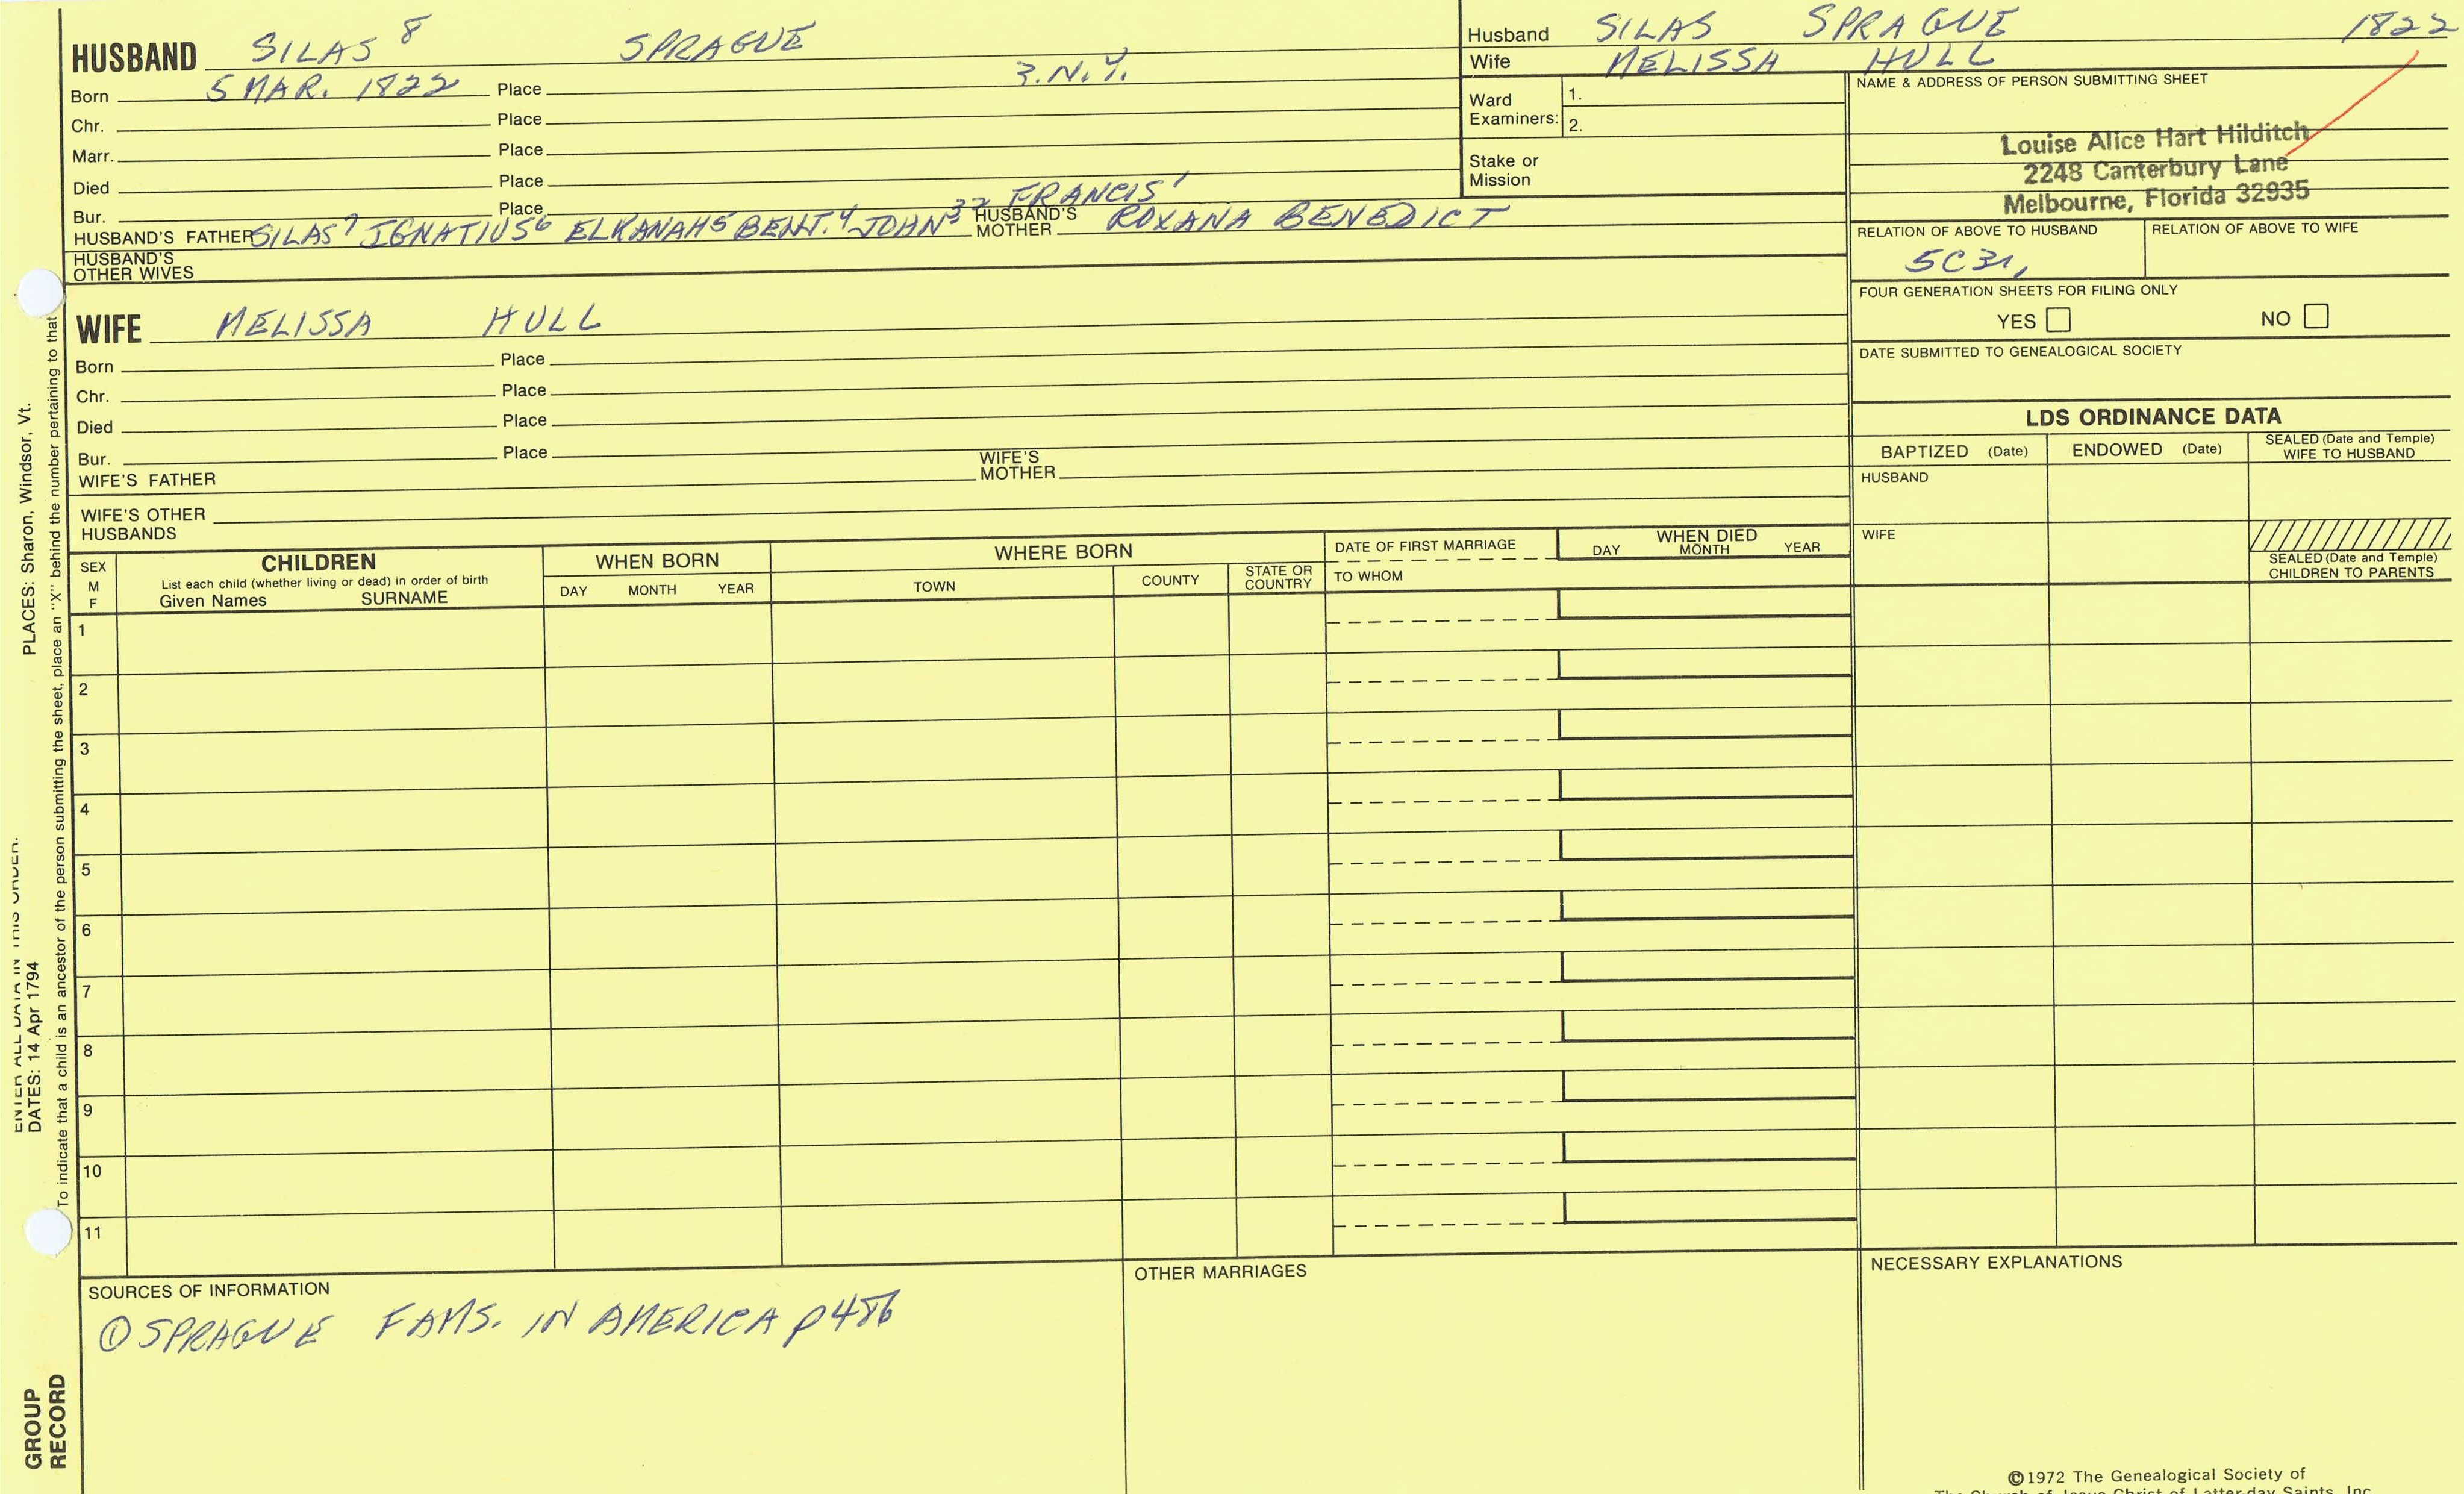 HUSBAND SILAS 8 SPRAGUE
Born 5 MAR. 1822 Place ?. N.Y.
Chr. Place
Marr. Place
Died Place
Bur. Place
HUSBAND'S FATHER SILAS 7 IGNATIUS 6 ELKANAH 5 BENJ. 4 JOHN 32 FRANCIS 1 HUSBAND'S MOTHER ROXANA BENEDICT
HUSBAND'S OTHER WIVES
Husband SILAS SPRAGUE 1822
Wife MELISSA HULL
Ward Examiners: 1.
2.
Stake or Mission
NAME & ADDRESS OF PERSON SUBMITTING SHEET
Louise Alice Hart Hilditch
2248 Canterbury Lane
Melbourne, Florida 32935
RELATION OF ABOVE TO HUSBAND RELATION OF ABOVE TO WIFE
FOUR GENERATION SHEETS FOR FILING ONLY
YES NO
DATE SUBMITTED TO GENEALOGICAL SOCIETY
WIFE MELISSA HULL
Born Place
Chr. Place
Died Place
Bur. Place
WIFE'S FATHER WIFE'S MOTHER
WIFE'S OTHER HUSBANDS
LDS ORDINANCE DATA
BAPTIZED (Date) ENDOWED (Date) SEALED (Date and Temple) WIFE TO HUSBAND
HUSBAND
WIFE
SEALED (Date and Temple) CHILDREN TO PARENTS
SEX M F CHILDREN WHEN BORN WHERE BORN DATE OF FIRST MARRIAGE WHEN DIED
List each child (whether living or dead) in order of birth
Given Names SURNAME DAY MONTH YEAR TOWN COUNTY STATE OR COUNTRY TO WHOM DAY MONTH YEAR
1
2
3
4
5
6
7
8
9
10
11
SOURCES OF INFORMATION
① SPRAGUE FAMS. IN AMERICA p 486
OTHER MARRIAGES
NECESSARY EXPLANATIONS
©1972 The Genealogical Society of
The Church of Jesus Christ of Latter-day Saints, Inc.
PLACES: Sharon, Windsor, Vt.
ENTER ALL DATA IN THIS ORDER:
DATES: 14 Apr 1794
To indicate that a child is an ancestor of the person submitting the sheet, place an "X" behind the number pertaining to that
GROUP RECORD